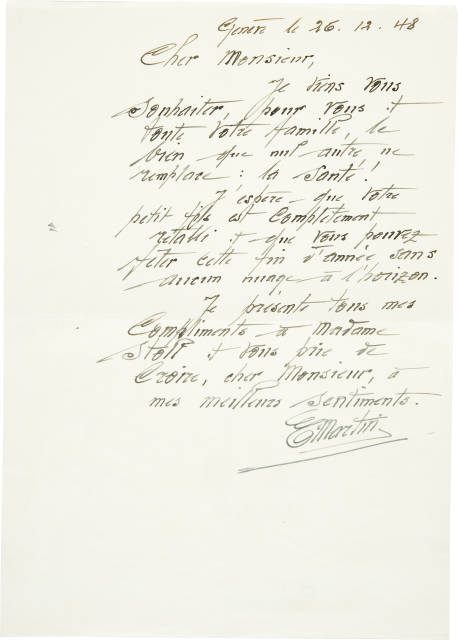 Genève le 26. 12. 48
Cher Monsieur,
Je viens vous
souhaiter, pour vous et
toute votre famille, le
bien que nul autre ne
remplace : la santé !
J'espère que votre
petit fils est complètement
rétabli et que vous pouvez
fêter cette fin d'année sans
aucun nuage à l'horizon.
Je présente tous mes
compliments à Madame
Stoll et vous prie de
croire, cher Monsieur, à
mes meilleurs sentiments.
E. Martin